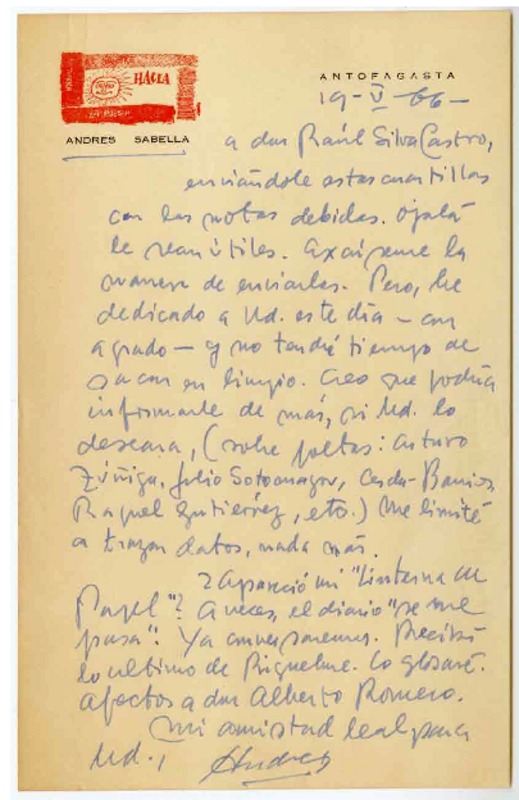 HACIA
ANTOFAGASTA
19-V-66-
ANDRES SABELLA
a don Raúl Silva Castro,
enviándole estas cuartillas
con las notas debidas. Ojalá
le sean útiles. Excúseme la
manera de enviarlas. Pero, he
dedicado a Ud. este día - con
agrado - y no tendré tiempo de
sacar en limpio. Creo que podría
informarle de más, si Ud. lo
deseara, (sobre poetas: Arturo
Zúñiga, Julio Sotomayor, Cerda-Barrios,
Raquel Gutiérrez, etc.) Me limité
a trazar datos, nada más.
¿Apareció mi "Linterna de
Papel"? A veces, el diario "se me
pasa". Ya conversaremos. Recibí
lo último de Riquelme. Lo glosaré.
Afectos a don Alberto Romero.
Mi amistad leal para
Ud.,
Andrés